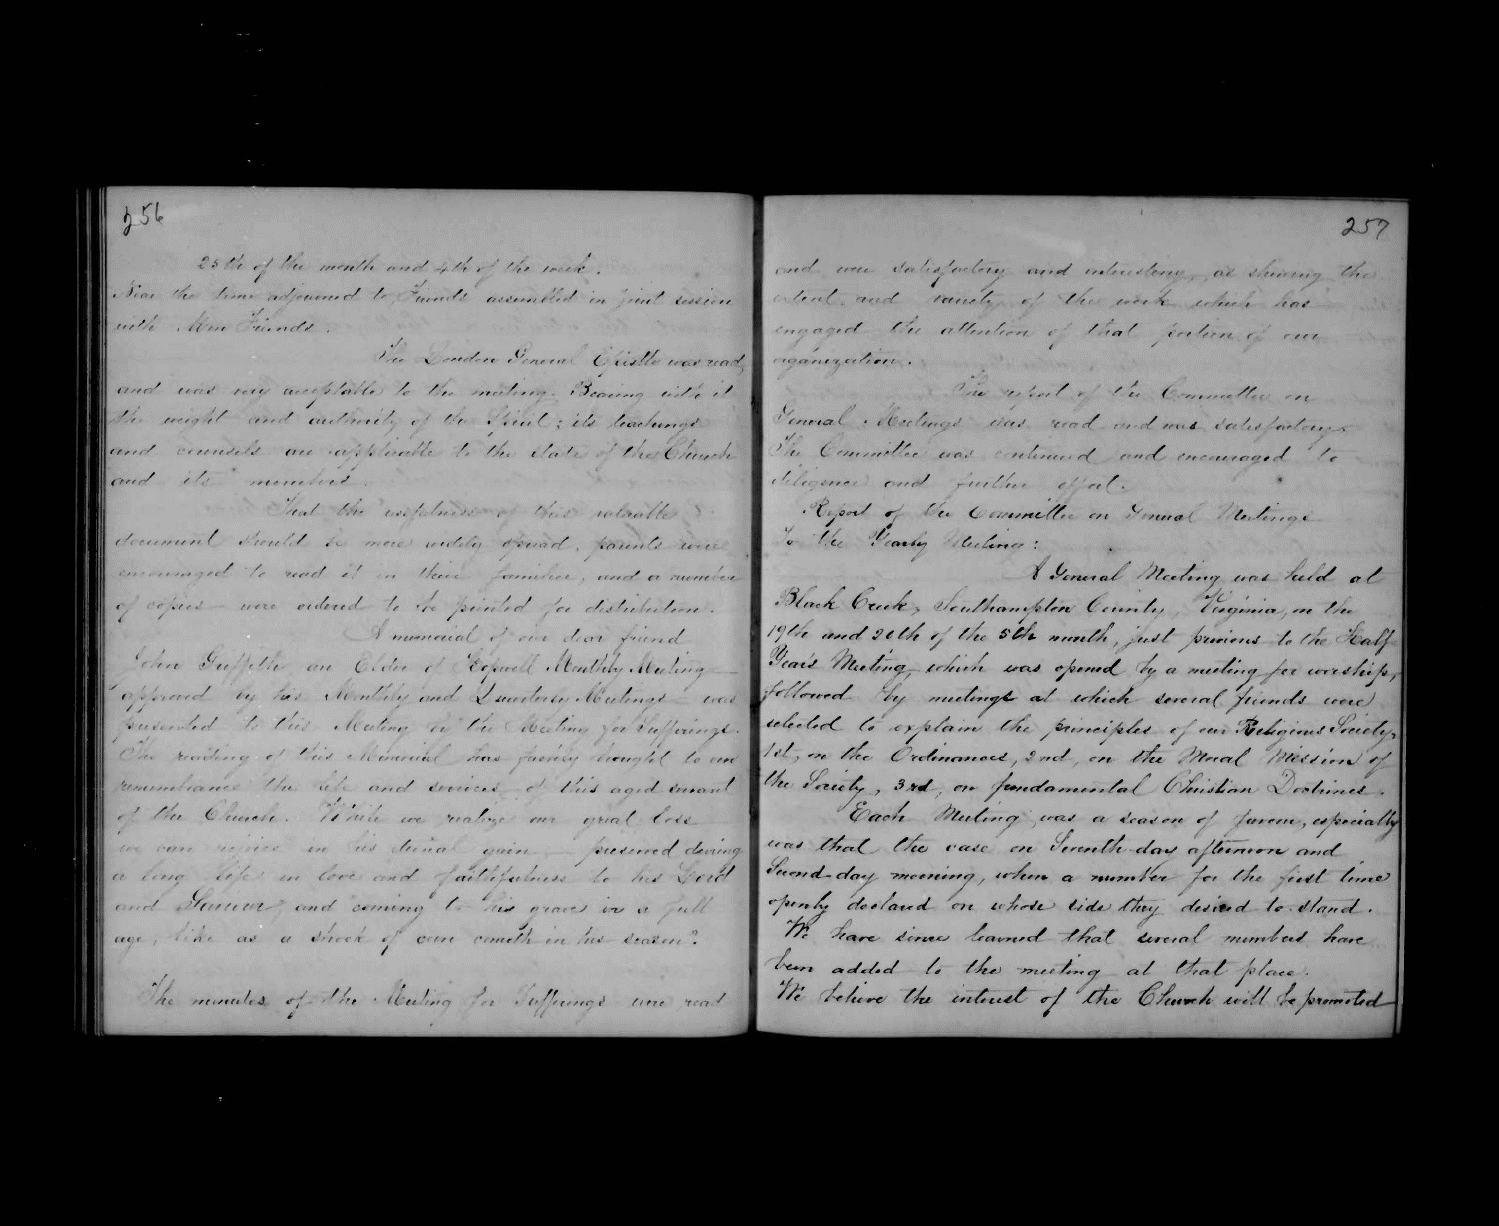 256
25th of the month and 4th of the week.
Near the time adjourned to, Friends assembled in joint session
with Men Friends.
The London General Epistle was read,
and was very acceptable to the meeting. Bearing with it
the weight and authority of the Spirit; its teachings
and counsels are applicable to the state of the Church
and its members.
That the usefulness of this valuable
document should be more widely spread, parents were
encouraged to read it in their families, and a number
of copies were ordered to be printed for distribution.
A memorial of our dear friend
John Griffith an Elder of Hopewell Monthly Meeting
approved by his Monthly and Quarterly Meetings was
presented to this Meeting by the Meeting for Sufferings.
The reading of this Memorial has freshly brought to our
remembrance the life and services of this aged servant
of the Church. While we realize our great loss
we can rejoice in his eternal gain preserved during
a long life in love and faithfulness to his Lord
and Saviour, and "coming to his grave in a full
age, like as a shock of corn cometh in his season".
The minutes of the Meeting for Sufferings were read
257
and were satisfactory and interesting, as showing the
extent and variety of the work which has
engaged the attention of that portion of our
organization.
The report of the Committee on
General Meetings was read and was satisfactory.
The Committee was continued and encouraged to
diligence and further effort.
Report of the Committee on General Meetings
To the Yearly Meeting:
A General Meeting was held at
Black Creek, Southampton County, Virginia, on the
19th and 20th of the 5th month, just previous to the Half-
Year's Meeting, which was opened by a meeting for worship,
followed by meetings at which several friends were
selected to explain the principles of our Religious Society,
1st, on the Ordinances, 2nd, on the Moral Mission of
the Society, 3rd, on fundamental Christian Doctrines.
Each Meeting was a season of favour, especially
was that the case on Seventh-day afternoon and
Second-day morning, when a number for the first time
openly declared on whose side they desired to stand.
We have since learned that several members have
been added to the meeting at that place.
We believe the interest of the Church will be promoted